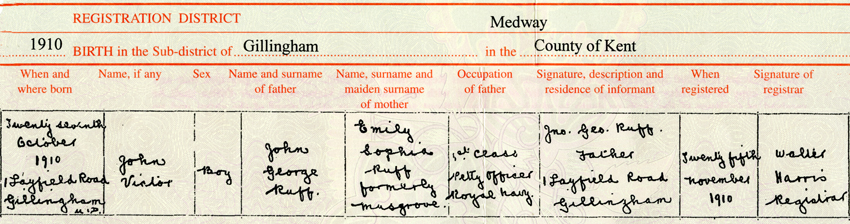 REGISTRATION DISTRICT Medway
1910 BIRTH in the Sub-district of Gillingham in the County of Kent
When and where born
Name, if any
Sex
Name and surname of father
Name, surname and maiden surname of mother
Occupation of father
Signature, description and residence of informant
When registered
Signature of registrar
Twenty seventh
October
1910
1 Layfield Road
Gillingham
U.D.
John
Victor
Boy
John
George
Ruff.
Emily
Sophia
Ruff
formerly
Musgrove.
1st Class
Petty Officer
Royal Navy
Jno. Geo. Ruff.
Father
1 Layfield Road
Gillingham
Twenty fifth
November
1910
Walter
Harris
Registrar